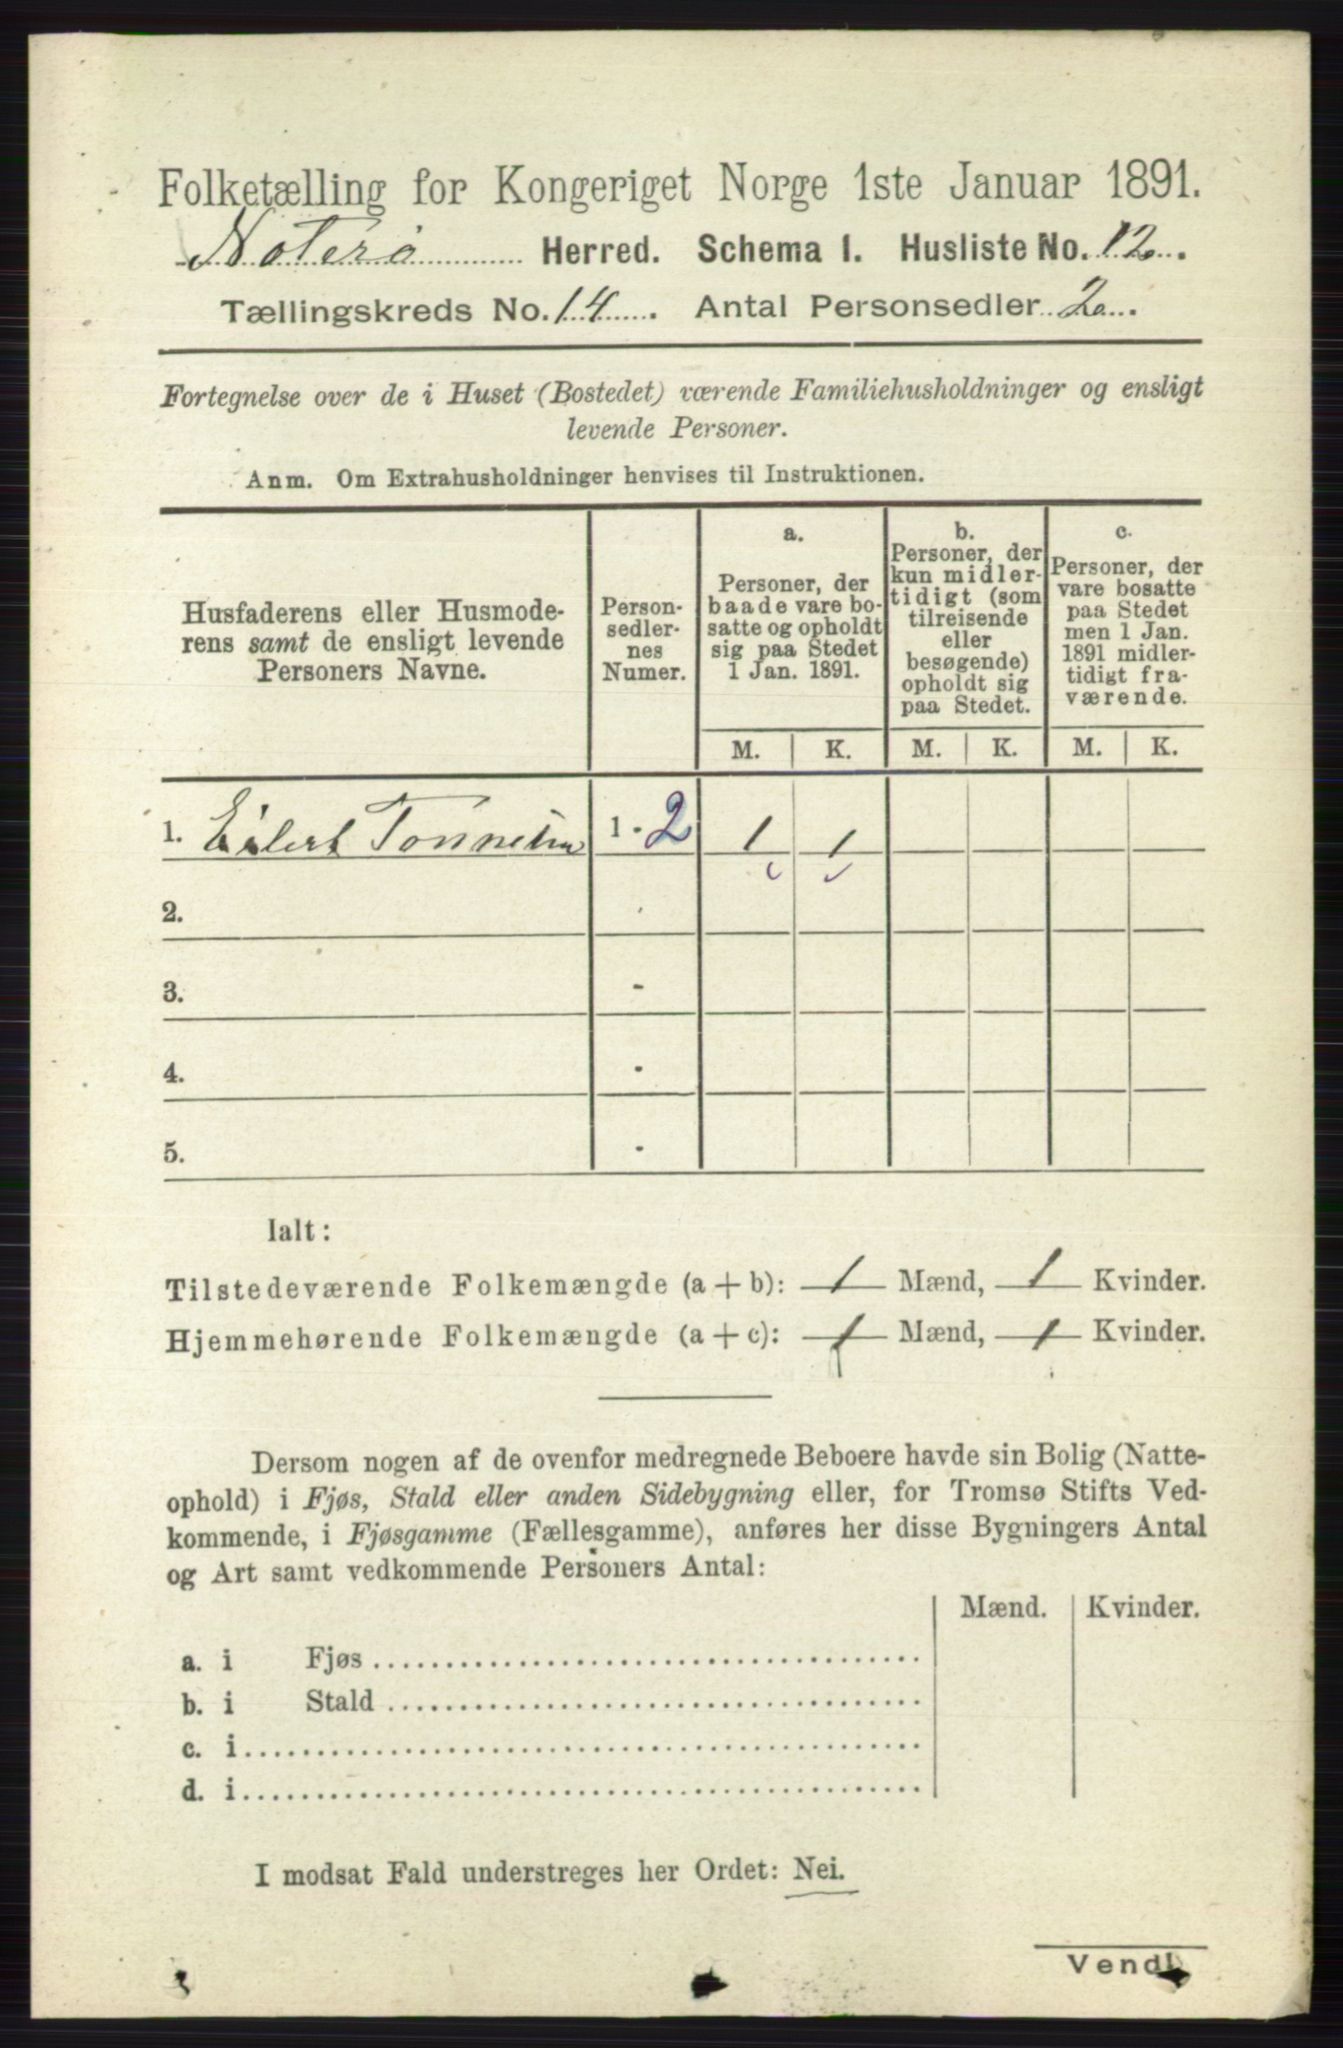 Folketælling for Kongeriget Norge 1ste Januar 1891.
Noterø Herred. Schema I. Husliste No. 12.
Tællingskreds No. 14. Antal Personsedler 2.
Fortegnelse over de i Huset (Bostedet) værende Familiehusholdninger og ensligt
levende Personer.
Anm. Om Extrahusholdninger henvises til Instruktionen.
Husfaderens eller Husmode-
rens samt de ensligt levende
Personers Navne.
Person-
sedler-
nes
Numer.
a.
Personer, der
baade vare bo-
satte og opholdt
sig paa Stedet
1 Jan. 1891.
b.
Personer, der
kun midler-
tidigt (som
tilreisende
eller
besøgende)
opholdt sig
paa Stedet.
c.
Personer, der
vare bosatte
paa Stedet
men 1 Jan.
1891 midler-
tidigt fra-
værende.
M. K. M. K. M. K.
1. Eilert 1 - 2 1 1
2.
3. -
4. -
5. -
Ialt:
Tilstedeværende Folkemængde (a + b): 1 Mænd, 1 Kvinder.
Hjemmehørende Folkemængde (a + c): 1 Mænd, 1 Kvinder.
Dersom nogen af de ovenfor medregnede Beboere havde sin Bolig (Natte-
ophold) i Fjøs, Stald eller anden Sidebygning eller, for Tromsø Stifts Ved-
kommende, i Fjøsgamme (Fællesgamme), anføres her disse Bygningers Antal
og Art samt vedkommende Personers Antal:
Mænd. Kvinder.
a. i Fjøs
b. i Stald
c. i
d. i
I modsat Fald understreges her Ordet: Nei.
Vend!